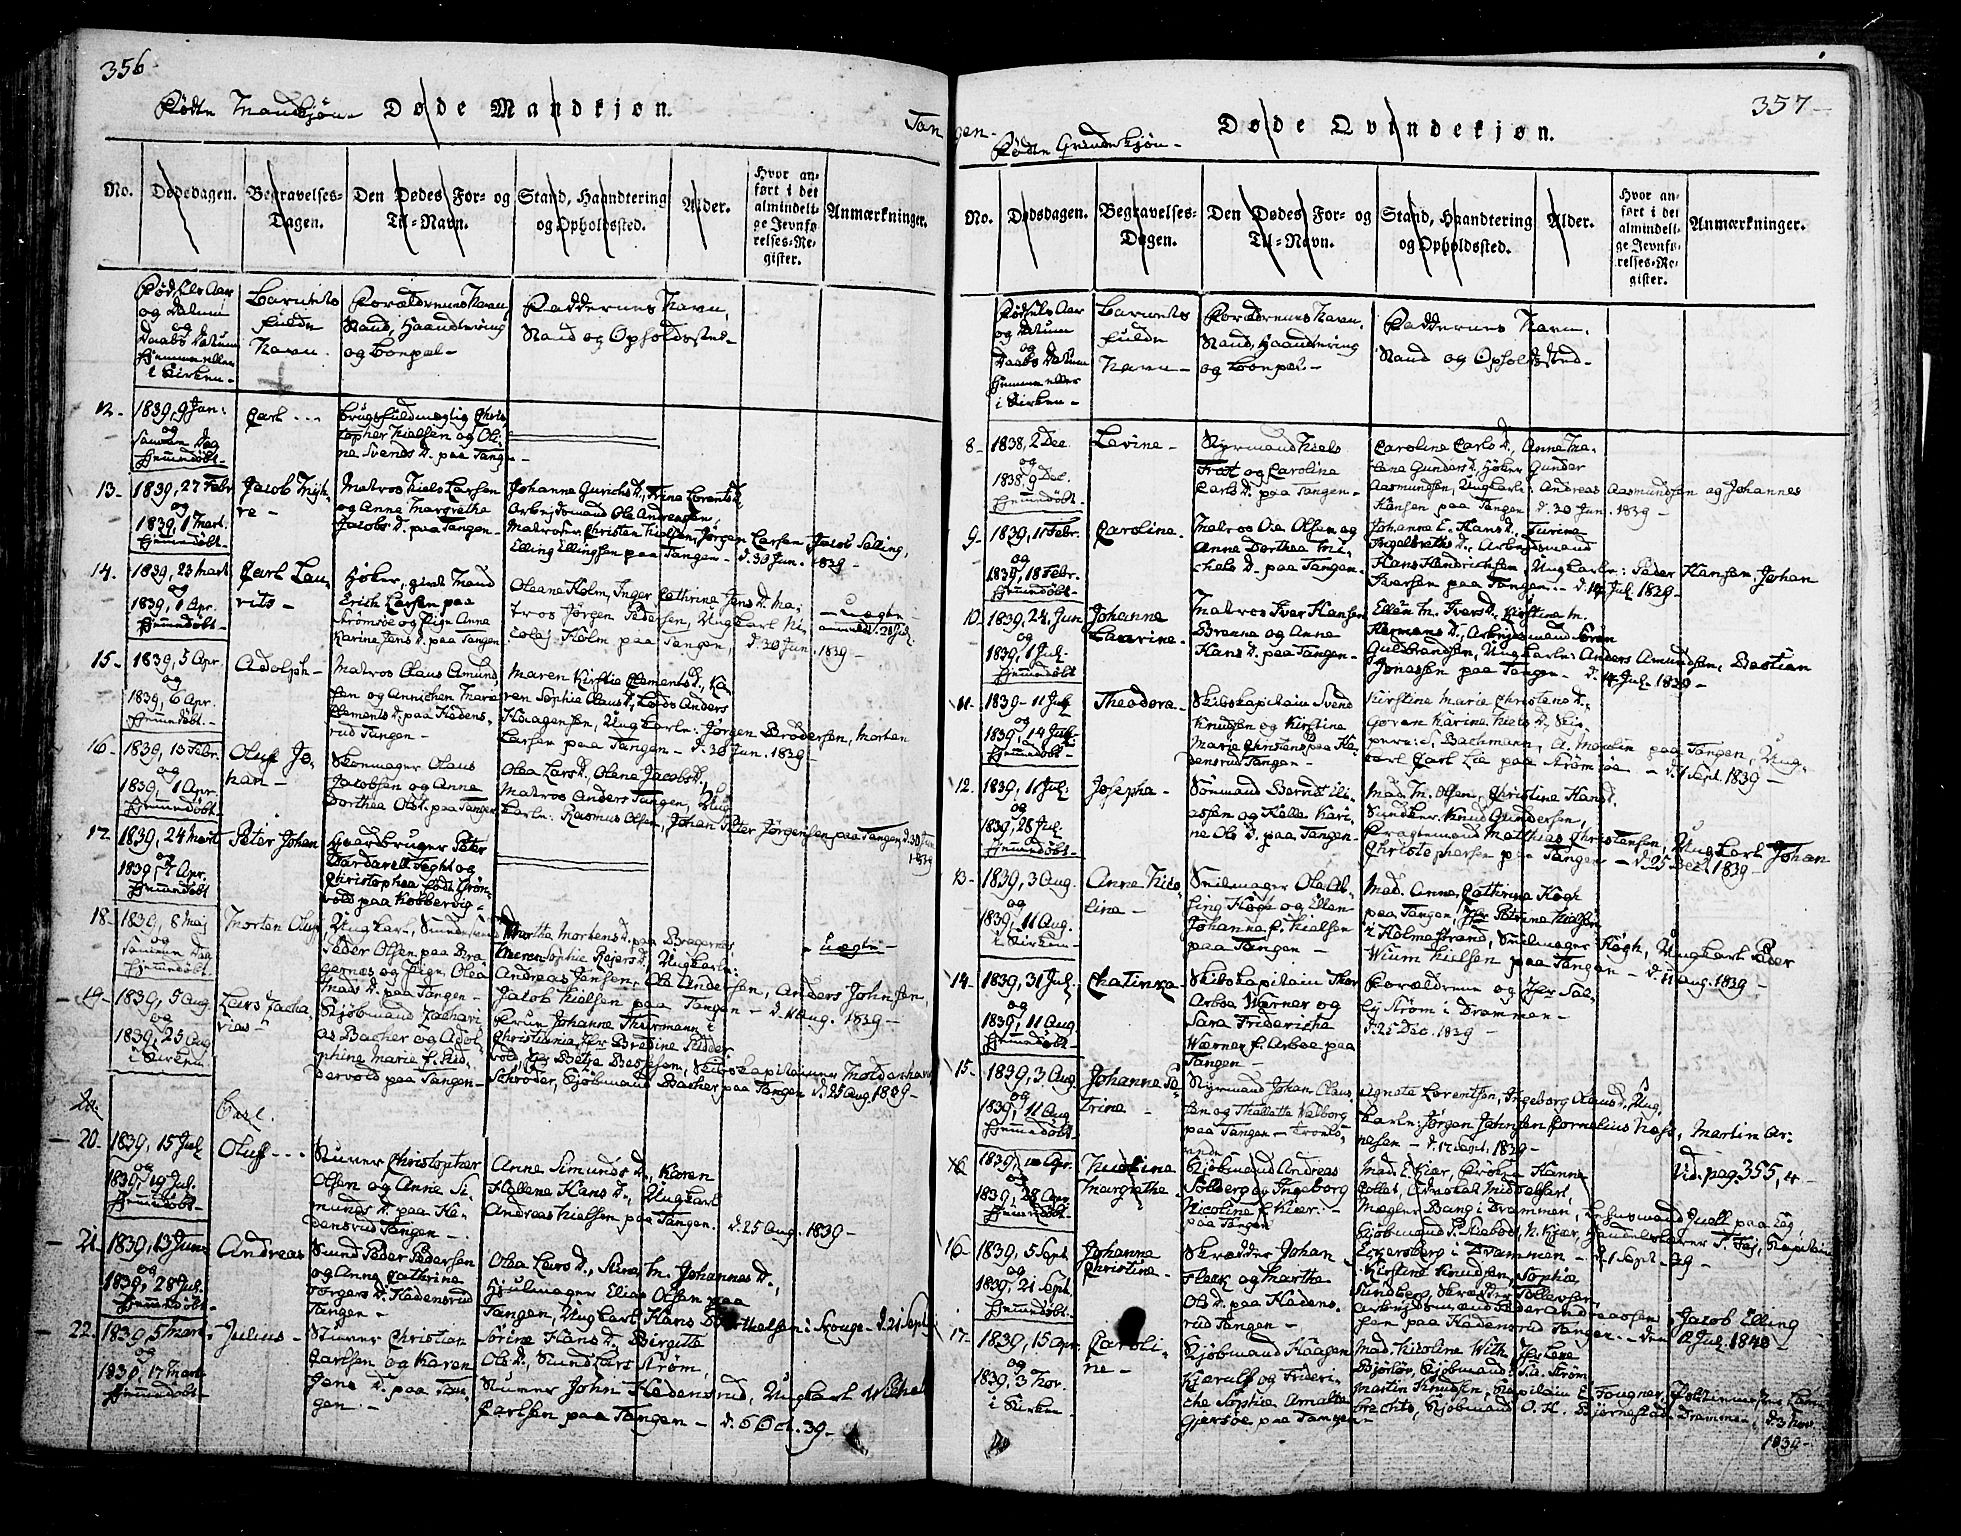 356
Fødte Mandkjøn
Døde Mandkjøn.
Tangen-
No.
Dødsdagen.
Begravelses-
Dagen.
Den Dødes For- og
Til-Navn.
Stand, Haandtering
og Opholdssted.
Alder.
Hvor an-
ført i det
almindeli-
ge Jevnfø-
relses-Re-
gister.
Anmærkninger.
Fødsels Aar
og Datum
og
Daabs Datum
hjemme eller
i Kirken-
Barnets
fulde
Navn.
Forældrenes Navn,
Stand, Haandtering
og Boepæl-
Faddernes Navn,
Stand og Opholdssted-
12-
1839, 9 Jan:
og
samme Dag
hjemmedøbt-
Carl ---
Brugsfuldmægtig Chris-
topher Nielsen og Oli-
ne Svends D. paa Tangen-
13-
1839, 27 Febr
og
1839, 1 Mart.
hjemmedøbt-
Jacob
re-
Matros Niels Larsen
og Anne Margrethe
Jacobs D. paa Tangen-
Johanne D., Trine Lorents D.
Arbejdsmand Ole Andersen,
Matroser Christen Nielsen, Jørgen Larsen, Jacob Selling,
Elling Ellingsen paa Tangen- d. 30 Jun. 1839-
14-
1839, 23 Mart
og
1839, 1 Apr.
hjemmedøbt-
Carl Lau-
rits-
Høker, gift Mand
Erich Larsen paa
Strømsøe og Pige Anne
Karine Jens D. paa Tangen
Oleane Holm, Inger Cathrine Jens D. Ma-
tros Jørgen Pedersen, Ungkarl Ni-
colaj Holm paa Tangen, d. 30 Jun. 1839-
- Uægte-
15-
1839, 5 Apr.
og
1839, 6 Apr.
hjemmedøbt-
Adolph-
Matros Olaus Amund-
sen og Annichen Marie
Clements D. paa Hedens-
rud Tangen-
Maren Kirstie Clements D., Ka-
ren Sophie Olaus D., Lods Anders
Haagensen, Ungkarle: Jørgen Brodersen, Morten
Larsen paa Tangen- d. 30 Jun. 1839-
16-
1839, 13 Febr.
og
1839, 1 Apr.
hjemmedøbt-
Oluf Jo-
han-
Skomager Olaus
Jacobsen og Anne
Dorthea Ols D. paa Tangen
Olea Lars D., Olene Jacobs D.,
Matros Anders Tangen, Ung-
karle: Rasmus Olsen, Johan Peter Jørgensen paa Tangen d. 30 Jun
1839
17-
1839, 24 Mart
og
1839, Apr.
hjemmedøbt
Peter Johan
Gaardbruger Peter
og
Christophea født Grøn-
vold paa Kobbervig-
18-
1839, 8 Maj
og
samme Dag
hjemmedøbt-
Morten Oluf
Ungkarl,
Peder Olsen paa Bra-
gernes og Pige, Olea
Mads D. paa Tangen-
Marthe Mortens D. paa Bragernes
Maren Sophie D., Ungkarle:
Andreas Jensen, Ole Andersen, Anders Johnsen,
Jacob Nielsen paa Tangen- d. 11 Aug. 1839-
- Uægte-
19-
1839, 5 Aug
og
1839, 25 Aug
i Kirken
Lars Zacha-
rias-
Kjøbmand Zachari-
as Bacher og Adol-
phine Marie f. Fid-
dervold paa Tangen-
Fruen Johanne Thurmann i
Christiania, Jfr Bredine
vold, Jfr Betze Skibskapitainer Moldenhaw
Schrøder, Kjøbmand Bacher paa Tangen d. 25 Aug. 1839-
20-
Carl.
20-
1839, 15 Jul
og
1839, 19 Jul.
hjemmedøbt-
Oluf ---
Sturer Christopher
Olsen og Anne Si-
munds D. paa He-
densrud Tangen-
Anne Simunds D., Karen
Hellene Hans D., Ungkarl
Andreas Nielsen paa Tangen. d. 25 Aug. 1839-
21-
1839, 13 Juni
og
1839, 28 Jul.
hjemmedøbt-
Andreas
Svend Peder Pedersen
og Anne Cathrine
Torgers D. Hedensrud
Tangen-
Olea Lars D., Stine M. Johannes D.,
Hjulmager Elias Olsen paa
Tangen, Ungkarl Hans Berthelsen i Skouge- d. 21 Sept.
22-
1839, 5 Mart.
og
1839, 17 Mart
hjemmedøbt-
Julius-
Sturer Christian
Carlsen og Karen
Jens D. paa Tan-
gen.-
Sørine Hans D. Birgitte
Ols D., Svend Lars Strøm,
Sturer John Hedensrud, Ungkarl Wilhelm
Carlsen paa Tangen- d. 6 Oct. 39-
357-
Fødte Qvindekjøn-
Døde Qvindekjøn.
No.
Dødsdagen.
Begravelses-
Dagen.
Den Dødes For- og
Til-Navn.
Stand, Haandtering
og Opholdssted.
Alder.
Hvor an-
ført i det
almindeli-
ge Jevnfø-
relses-Re-
gister.
Anmærkninger.
Fødsels Aar
og Datum
og
Daabs Datum
hjemme eller
i Kirken-
Barnets
fulde
Navn-
Forældrenes Navn,
Stand, Haandtering
og Boepæl-
Faddernes Navn,
Stand og Opholdssted-
8-
1838, 2 Dec.
og
1838, 9 Dec.
hjemmedøbt-
Levine-
Styrmand Niels
Trost og Caroline
Carls D. paa Tangen-
Caroline Carls D., Anne Ma-
lene Gunders D., Høker Gunder
Aasmundsen, Ungkarle: Andreas Aasmundsen og Johannes
Hansen paa Tangen d. 30 Jun. 1839-
9-
1839, 11 Febr.
og
1839, 18 Febr.
hjemmedøbt-
Caroline.
Matros Ole Olsen og
Anne Dorthea Mi-
chels D. paa Tangen-
Johanne E. Hans D., Turine
Ingelbreths D., Arbejdsmand
Hans Hendrichsen, Ungkarle: Peder Hansen, Johan
Iversen paa Tangen- d. 14 Jul. 1839-
10-
1839, 24 Jun
og
1839, 1 Jul.
hjemmedøbt
Johanne
Laurine-
Matros Iver Hansen
Brenne og Anne
Hans D. paa Tangen-
Ellen M. Ivers D., Kirstine M.
Hermans D., Arbejdsmand Søren
Guldbrandsen, Ungkarle: Anders Amundsen, Bastian
Jonassen paa Tangen- d. 14 Jul. 1839-
11-
1839- 11 Jul.
og
1839, 14 Jul.
hjemmedøbt-
Theodora-
Skibskapitain Svend
Knudsen og Kirstine
Marie Christens paa He-
densrud Tangen-
Kirstine Marie Christens D.-
Goren Karine Niels D., Skip-
pere: S. Bachmann, A. Moulin paa Tangen, Ung-
karl Carl Lie paa Strømsøe- d. 1 Sept. 1839-
12-
1839, 11 Jul.
og
1839, 28 Jul.
hjemmedøbt-
Josepha-
Sømmand Bernt Eli-
assen og Helle Kari-
ne Ols D. paa Tangen-
Mad. M. Olsen, Christine Hans D.
Snedker Knud Gundersen,
Fragtemand Matthias Christensen, Ungkarl Johan
Christophersen paa Tangen- d. 25 Dec. 1839-
13-
1839, 3 Aug.
og
1839, 11 Aug.
i Kirken-
Anne Nico-
line-
Seilmager Ole Ab-
sing Høgh og Ellen
Johanne f. Nielsen
paa Tangen
Mad. Anne Cathrine Høgh
paa Tangen, Jfr Petrine Nielsen
i Holmestrand, Seilmager Høgh, Ungkarl Peder
Wium Nielsen paa Tangen- d. 11 Aug. 1839-
14-
1839, 31 Jul.
og
1839, 11 Aug
hjemmedøbt-
Chatinka-
Skibskapitain Thor
Arboe Wærner og
Sara Friderikke
Wærner f. Arboe paa
Tangen-
Forældrene og Jfr Sal-
ly Strøm i Drammen-
d. 25 Dec. 1839-
15-
1839, 3 Aug
og
1839, 11 Aug
hjemmedøbt-
Johanne Pe-
trine-
Styrmand Johan Olaus-
sen og Thallette Walborg
paa Tangen-
Agnete Lorentsen, Ingeborg Olaus D., Ung-
karle: Jørgen Johnsen Cornelius Næss, Martin Ar-
nesen- d. 17 Sept. 1839-
16
1839, 10 Apr.
og
1839, 28 Apr
hjemmedøbt-
Nicoline
Margrethe
Kjøbmand Andreas
Solberg og Ingeborg
Nicoline f. Kiær.-
paa Tangen
Mad. E. Kiær, Hanna
Collet, Advokat Middelfart,
Mægler Bang i Drammen, Juell paa Eeg
Kjøbmand P. N. Kjær, Handelsbetjener T. Faj, Kapitain
Eckersberg i Drammen- d. 1 Sept. 39-
Vid. pag. 355, 4-
16-
1839, 5 Sept
og
1839, 21 Sept.
hjemmedøbt-
Johanna
Christine-
Skrædder Johan
Fleek og Marthe
Ols D. paa Hedens-
rud Tangen-
Kirstine Knudsen, Sophie
Sundberg, Skrædder Tollevsen
Arbejdsmand Peder Andreassen, Jacob Elling-
sen paa Hedensrud Tangen.- den 12 Jul. 1840-
17-
1839, 15 Apr
og
1839, 3 Nov.
i Kirken
Caroli-
ne-
Kjøbmand Haagen
Kierulf og Frideri-
che Sophie Amalie
Gjersøe paa Tangen-
Mad. Nicoline With, Jfr Lene
Bjørlør, Kjøbmænd: Strøm
Martin Knudsen, Kapitain E. Fougner,
brechts, Kjøbmand O. H. Bjørnestad Drammen, d. 3 Nov
1839-